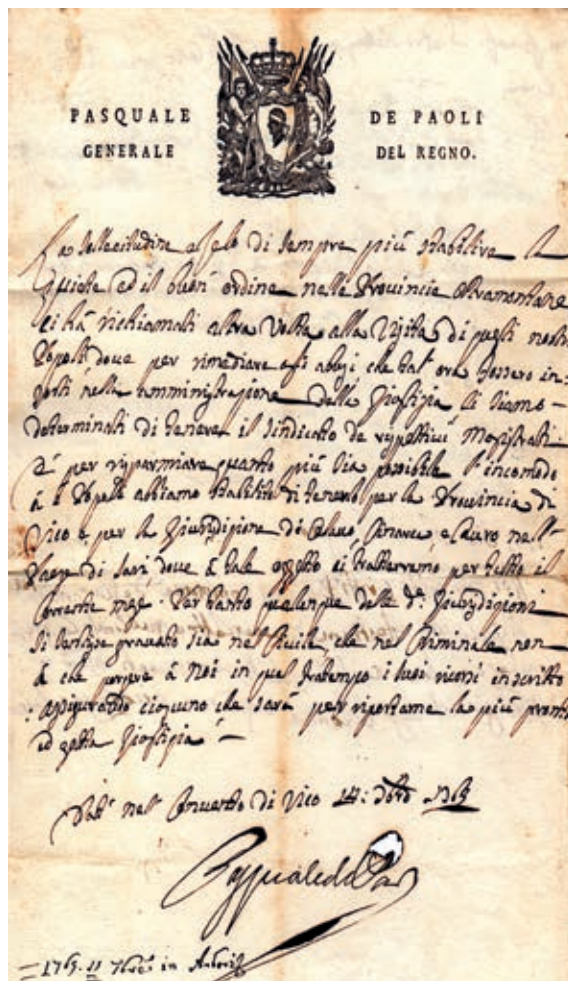 PASQUALE DE PAOLI
GENERALE DEL REGNO.
La sollecitudine e zelo di sempre più stabilire la
quiete ed il buon' ordine nelle Provincie Oltramontane
ci hà richiamati altra volta alla Visita di quegli nostri
Popoli dove per rimediare agli abusi che tal' ora fossero in:
sorti nella amministrazione della Giustizia ci siamo
determinati di tenere il Sindicato de rispettivi Magistrati.
E per risparmiare quanto più sia possibile l'incomodo
a i Popoli abbiamo stabilito di tenerlo per la Provincia di
Vico e per la Giurisdizione di Celavo, Cinarca e Cauro nell'
di Sari, dove à tale oggetto ci tratterremo per tutto il
Corrente mese. Per tanto qualunque delle de. Giurisdizioni
si sentisse gravato sia nel Civile, che nel Criminale non
à che porgere à Noi in quel fratempo i suoi ricorsi in scritto
assicurando ciascuno che sarà per riportarne la più pronta
ed esatta Giustizia
nel Convento di Vico 1765
Pasquale de Paoli
1765. 11 in